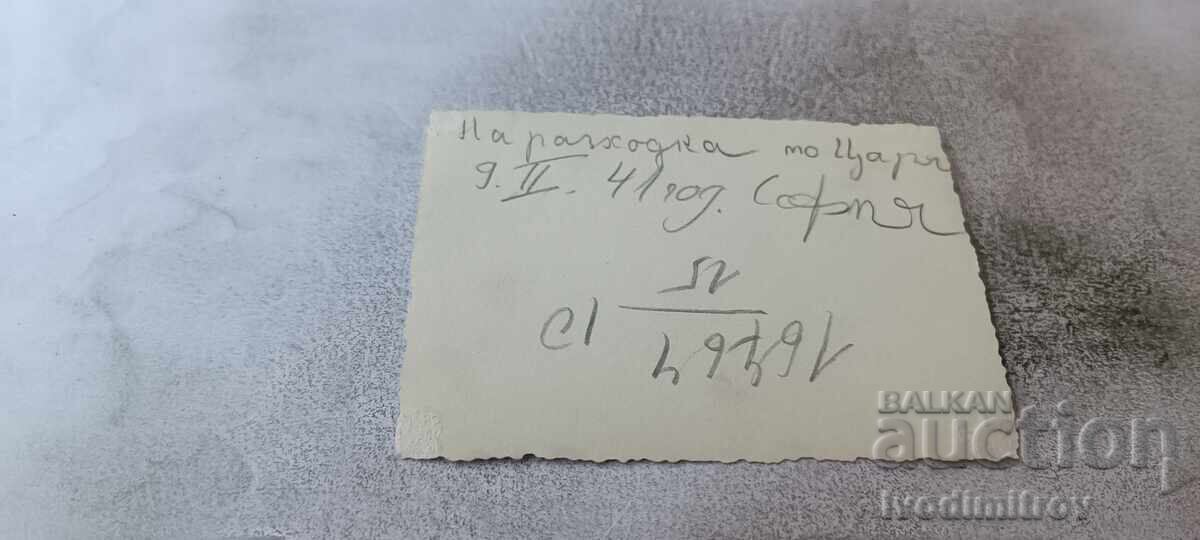 На разходка по Царя
9. II. 41 год. София
16767
15
10
BALKAN
auction
ivodimitrov